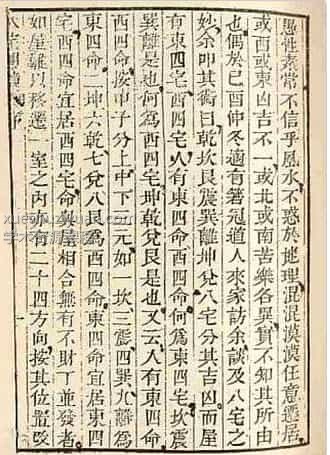 愚性素常不信乎風水不惑於地理混混漠漠任意遷居
或西或東凶吉不一或北或南苦樂各異實不知其所由
也偶於己酉仲冬適有箬冠道人來家訪余談及八宅之
妙余叩其衛曰乾坎艮震巽離坤兌八宅分其吉凶而屋
有東四宅西四宅人有東四命西四命何為東四宅坎震
巽離是也何為西四宅坤乾兌艮是也又云人有東四命
西四命按甲子分上中下三元如一坎三震四巽九離為
東四命二坤六乾七兌八艮為西四命東四命宜居東四
宅西四命宜居西四宅命與屋相合無有不財丁並發者
如屋難以移遷一室之內亦有二十四方向按其位置竪